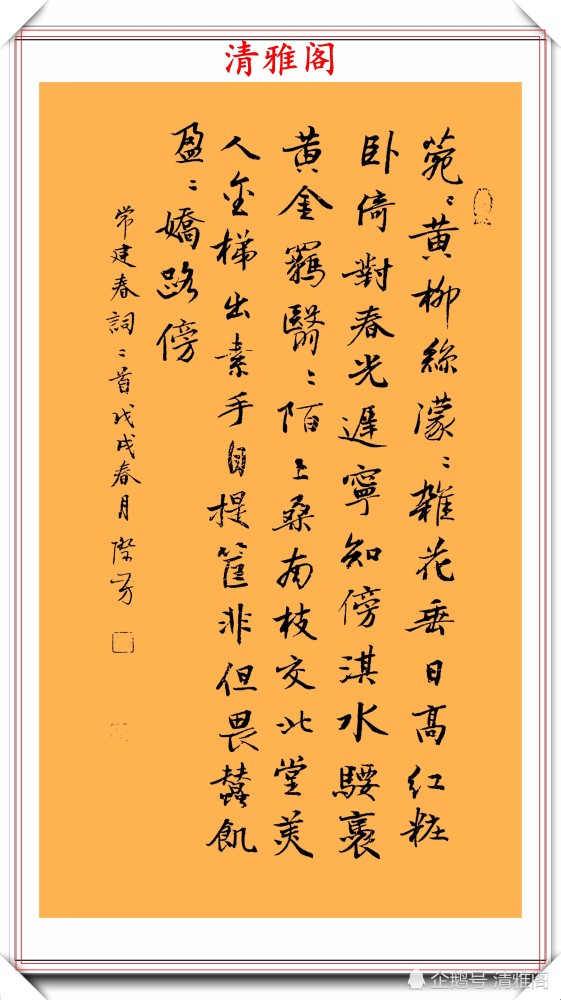 清雅阁
菀〻黄柳絲濛〻雜花垂日高紅粧
卧倚對春光遲寧知傍淇水騕褭
黄金羈翳〻陌上桑南枝交北堂美
人金梯出素手自提筐非但畏蠶飢
盈〻嬌路傍
常建春詞二首戊戌春月際芳
企鹅号 清雅阁